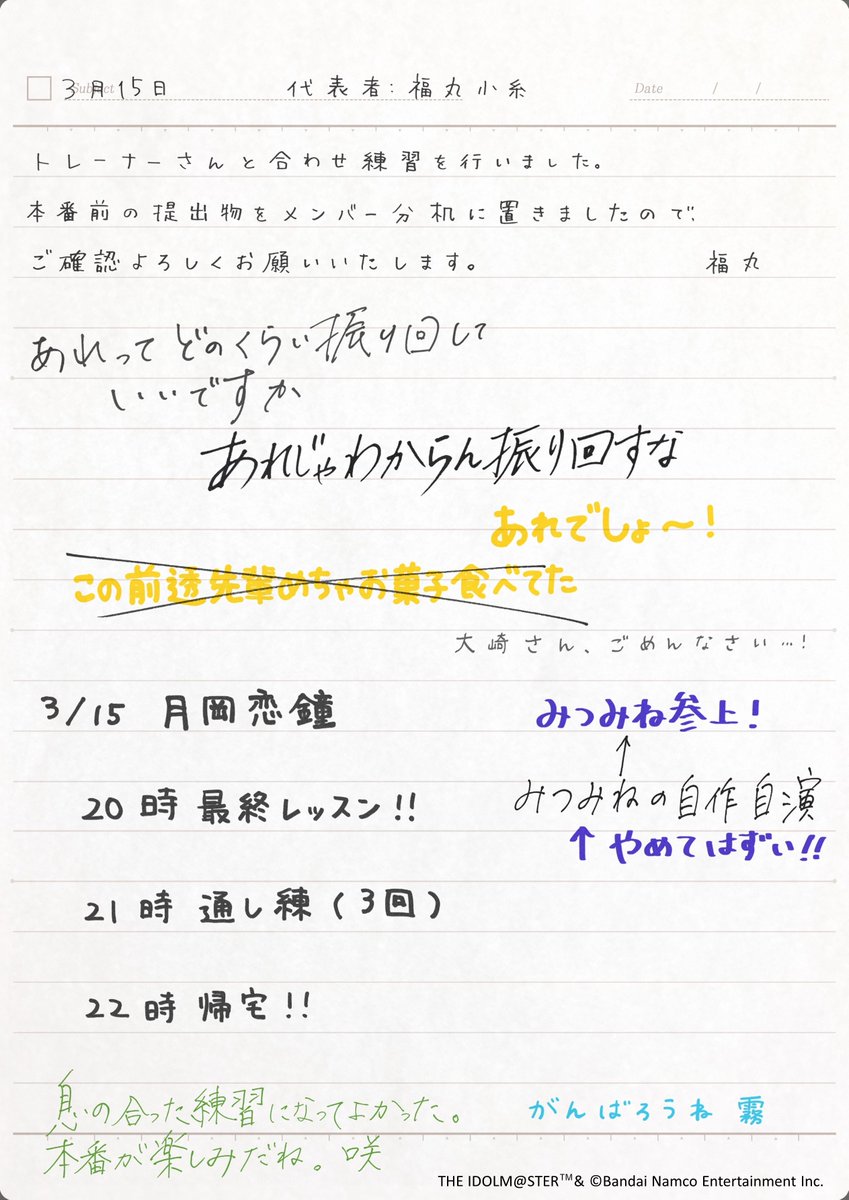 Subject 3月15日 代表者:福丸小糸 Date / /
トレーナーさんと合わせ練習を行いました。
本番前の提出物をメンバー分机に置きましたので、
ご確認よろしくお願いいたします。 福丸
あれってどのくらい振り回して
いいですか
あれじゃわからん振り回すな
あれでしょ〜!
この前透先輩めちゃお菓子食べてた
大崎さん、ごめんなさい…!
3/15 月岡恋鐘
みつみね参上!
↑
20時 最終レッスン!!
みつみねの自作自演
↑やめてはずい!!
21時 通し練(3回)
22時 帰宅!!
息の合った練習になってよかった。
本番が楽しみだね。咲
がんばろうね 霧
THE IDOLM@STER™& ©Bandai Namco Entertainment Inc.